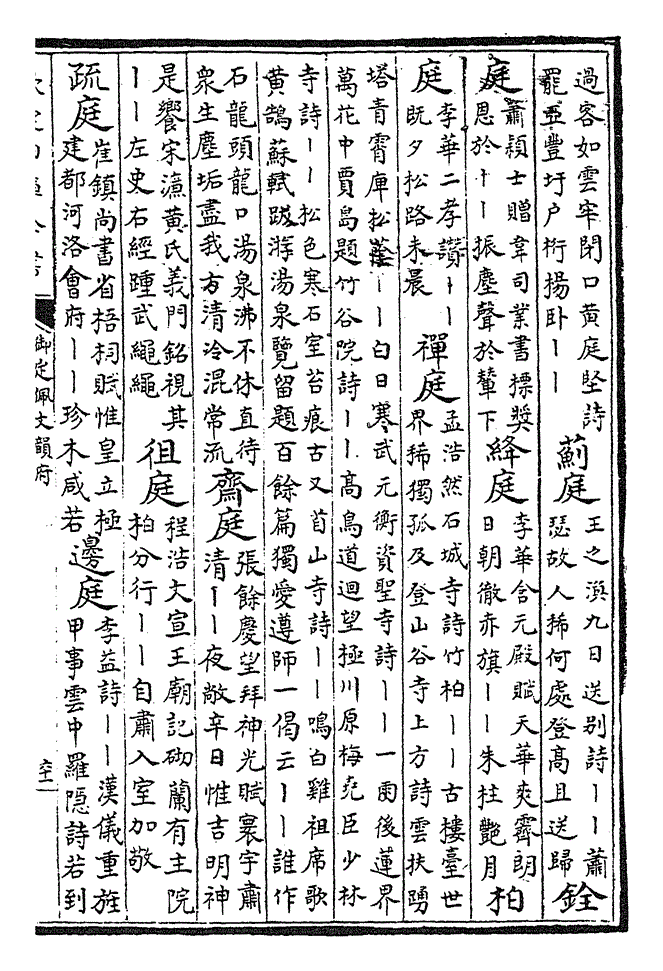 過客如雲牢閉口黃庭堅詩
罷亞豐圩戶桁揚卧丨丨
薊庭
王之渙九日送别詩丨丨蕭
瑟故人稀何處登高且送歸
銓
庭
蕭穎士贈韋司業書摽奬
恩於丨丨振塵聲於輦下
絳庭
李華含元殿賦天華爽霽朗
日朝徹赤旗丨丨朱柱艷月
柏
庭
李華二孝讃丨丨
既夕松路未晨
禪庭
孟浩然石城寺詩竹柏丨丨古樓臺世
界稀獨孤及登山谷寺上方詩雲扶踴
塔青霄庳松蔭丨丨白日寒武元衡資聖寺詩丨丨一雨後蓮界
萬花中賈島題竹谷院詩丨丨高鳥道迴望極川原梅堯臣少林
寺詩丨丨松色寒石室苔痕古又首山寺詩丨丨鳴白雞祖席歌
黃鵠蘇軾跋游湯泉覽留題百餘篇獨愛遵師一偈云丨丨誰作
石龍頭龍口湯泉沸不休直待
衆生塵垢盡我方清冷混常流
齋庭
張餘慶望拜神光賦寰宇肅
清丨丨夜敞辛日惟吉明神
是饗宋濂黃氏義門銘視其
丨丨左史右經踵武繩繩
徂庭
程浩文宣王廟記砌蘭有主院
柏分行丨丨自肅入室加敬
疏庭
崔鎮尚書省梧桐賦惟皇立極
建都河洛會府丨丨珍木咸若
邊庭
李益詩丨丨漢儀重旌
甲事雲中羅隱詩若到
御定佩文韻府